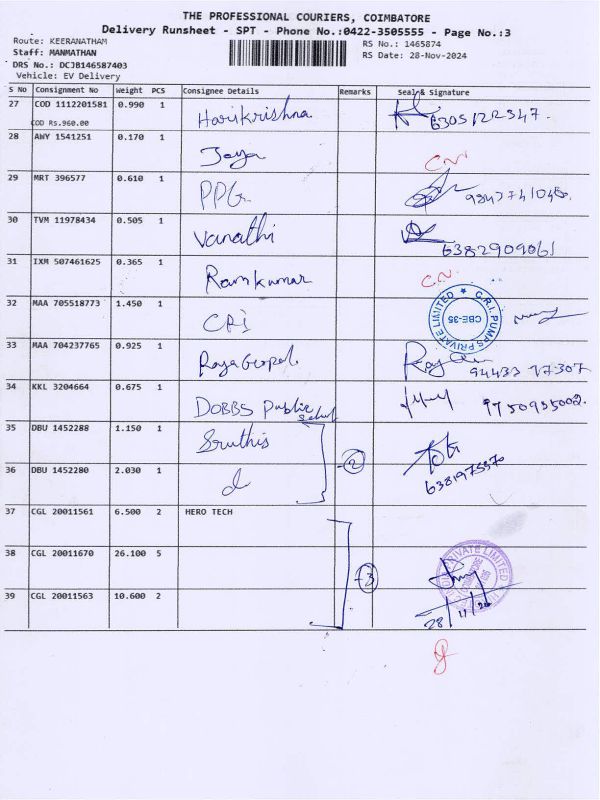 THE PROFESSIONAL COURIERS, COIMBATORE
Delivery Runsheet - SPT - Phone No.:0422-3505555 - Page No.:3
Route: KEERANATHAM
Staff: MANMATHAN
DRS No.: DCJB146587403
Vehicle: EV Delivery
RS No.: 1465874
RS Date: 28-Nov-2024
S No Consignment No Weight PCS Consignee Details Remarks Seal & Signature
27 COD 1112201581 0.990 1 Harikrishna 6305122347.
COD Rs.960.00
28 AWY 1541251 0.170 1 Jaya C.N.
29 MRT 396577 0.610 1 PPG
30 TVM 11978434 0.505 1 Vanathi 6382909061
31 IXM 507461625 0.365 1 Ramkumar C.N.
32 MAA 705518773 1.450 1 CRI C.R.I. PUMPS PRIVATE LIMITED CBE-35
33 MAA 704237765 0.925 1 RajaGopal 94433 17307
34 KKL 3204664 0.675 1 DOBBS Public School 9750955002.
35 DBU 1452288 1.150 1 Sruthis
36 DBU 1452280 2.030 1 d 2
37 CGL 20011561 6.500 2 HERO TECH
38 CGL 20011670 26.100 5 3 PRIVATE LIMITED
39 CGL 20011563 10.600 2 28/11/24